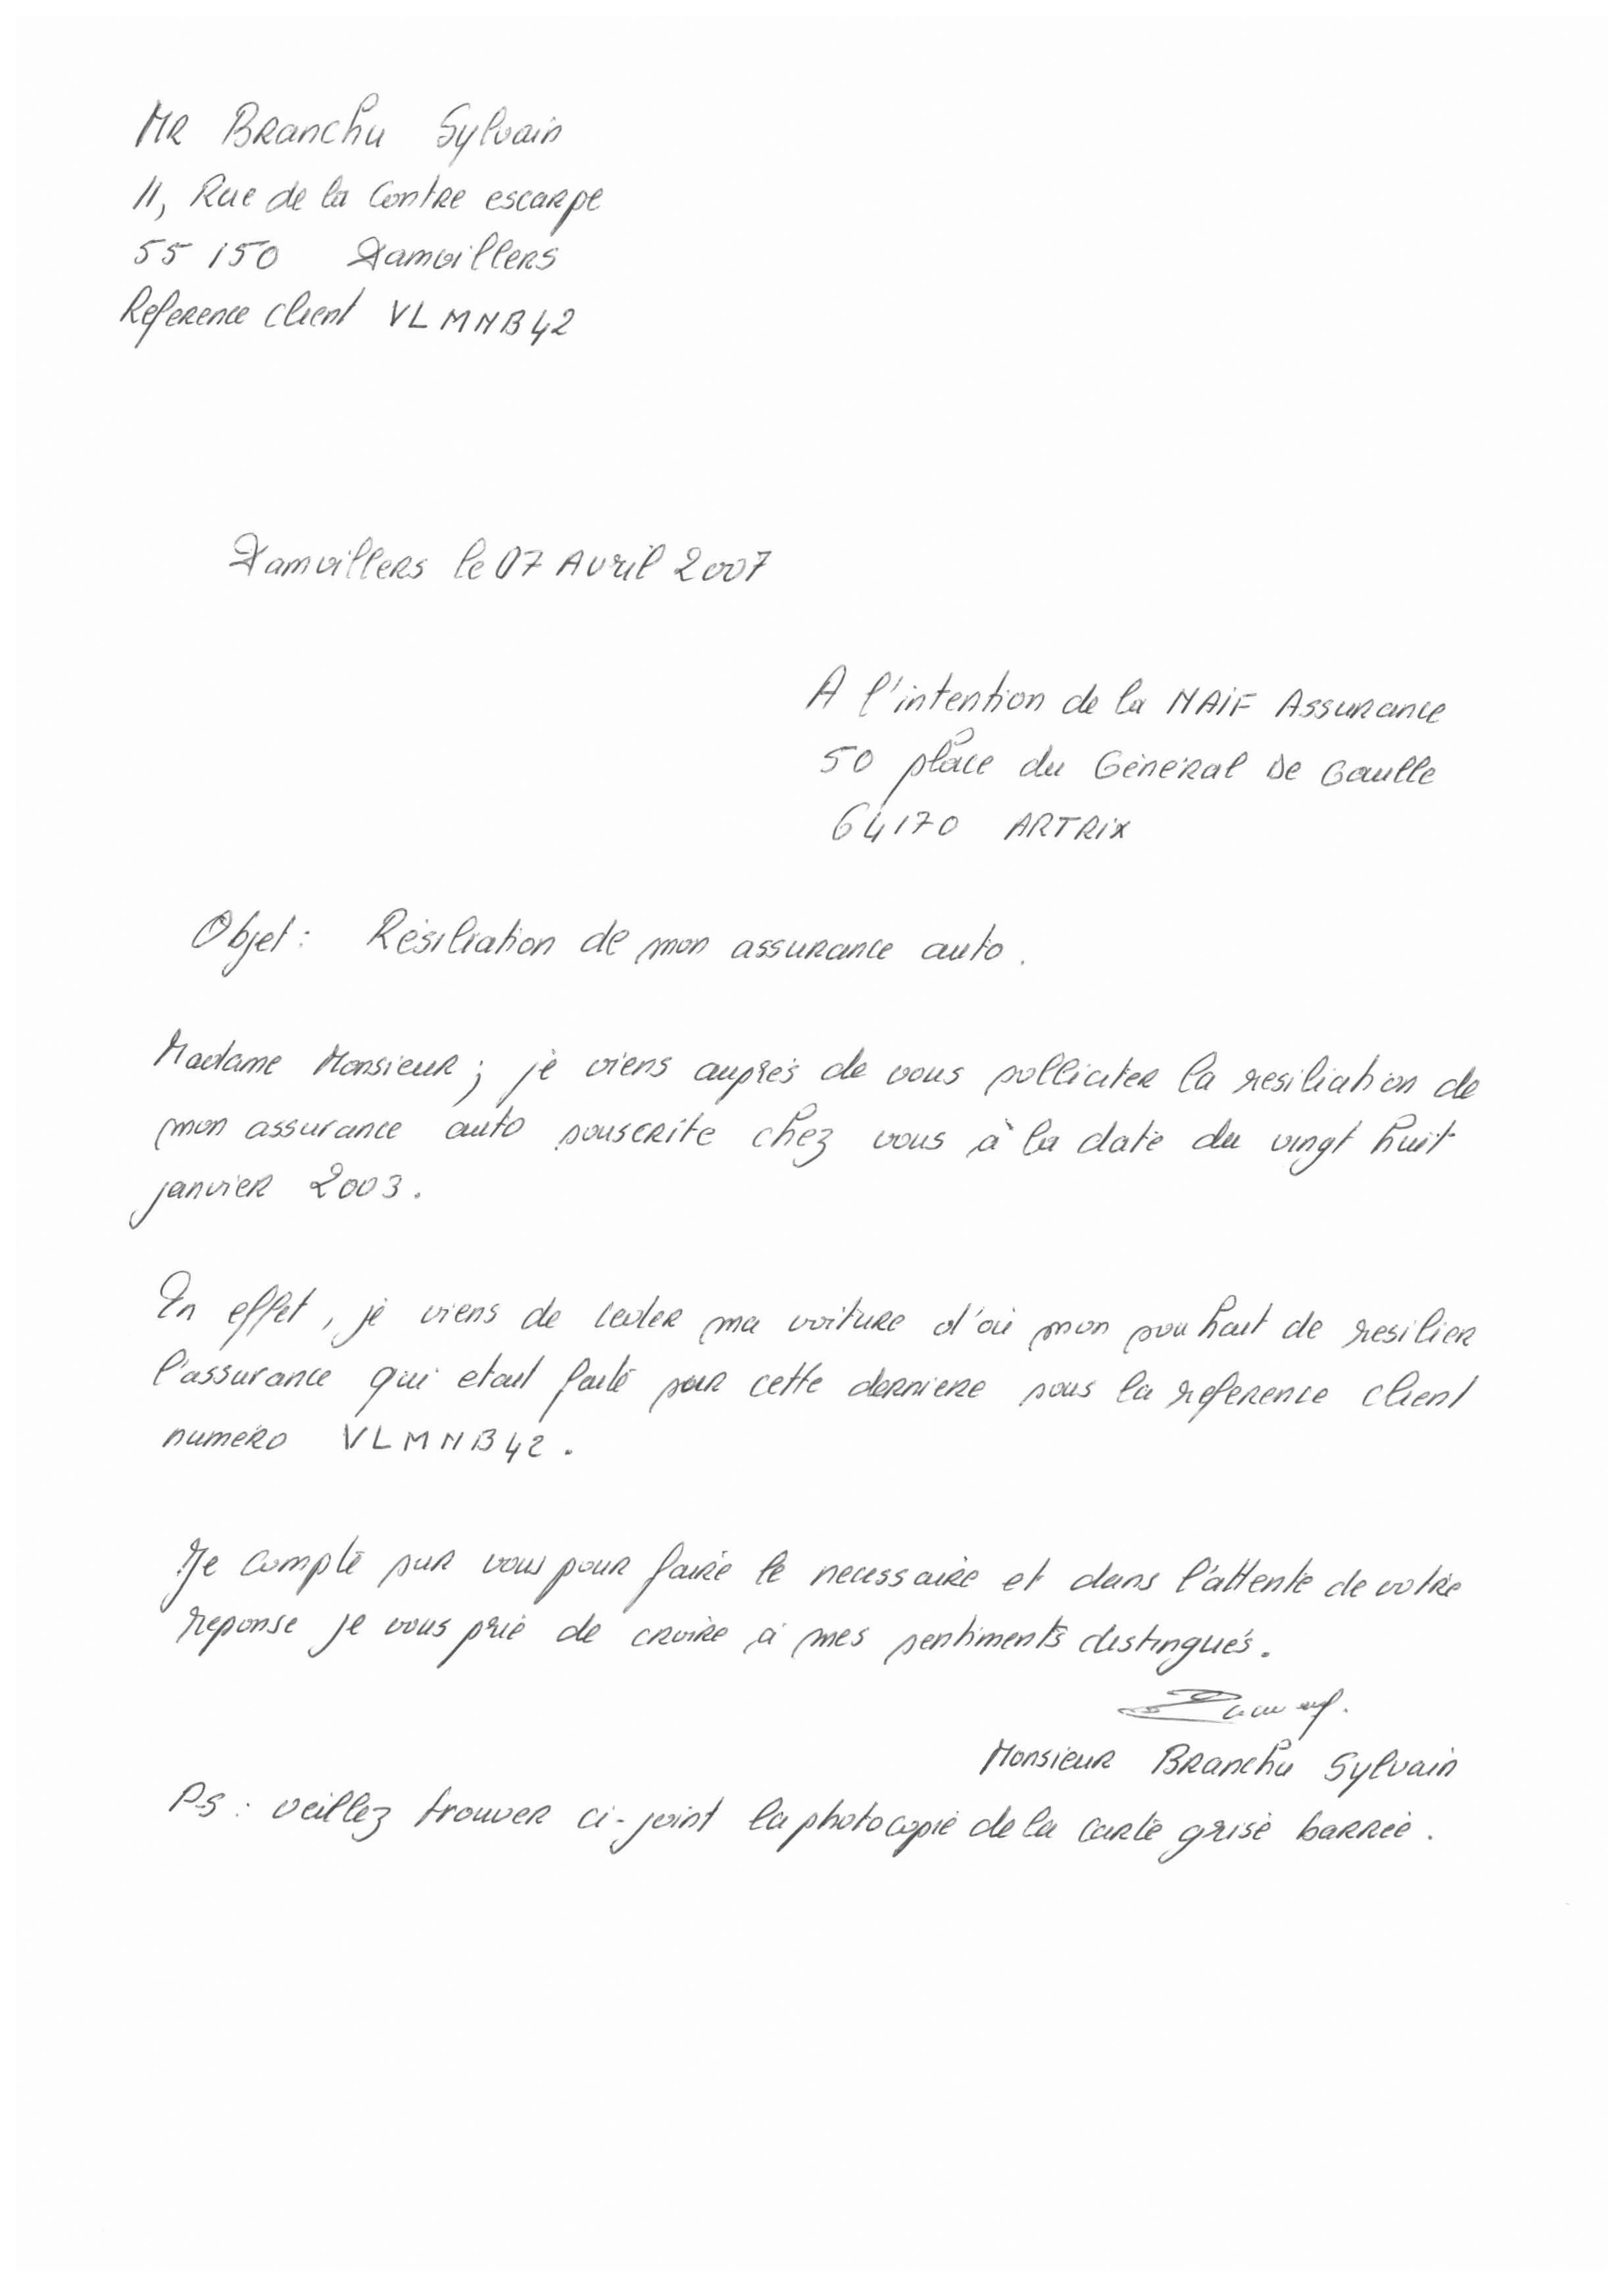 MR Branchu Sylvain
11, Rue de la Contre escarpe
55 150 Damvillers
Reference client VLMNB42
Damvillers le 07 Avril 2007
A l'intention de la NAIF Assurance
50 place du Général De Gaulle
64170 ARTRIX
Objet : Résiliation de mon assurance auto.
Madame Monsieur ; je viens auprès de vous solliciter la resiliation de
mon assurance auto souscrite chez vous à la date du vingt huit
janvier 2003.
En effet, je viens de ceder ma voiture d'où mon souhait de resilier
l'assurance qui etait faite pour cette derniere sous la reference client
numéro VLMNB42.
Je compte sur vous pour faire le necessaire et dans l'attente de votre
reponse je vous prie de croire à mes sentiments distingués.
Monsieur Branchu Sylvain
P-S : veillez trouver ci-joint la photocopie de la carte grise barrée.